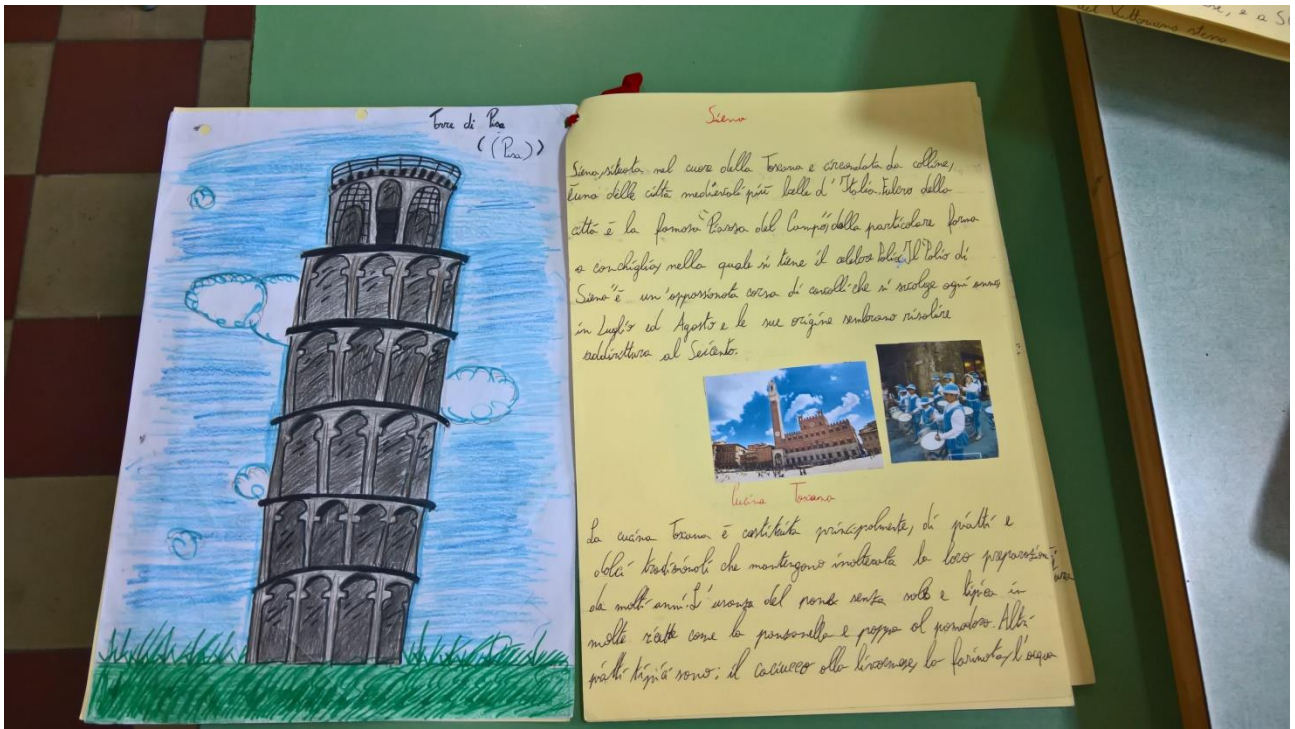 Torre di Pisa
((Pisa))
Siena
Siena, situata nel cuore della Toscana e circondata da colline,
è una delle città medievali più belle d'Italia. Fulcro della
città è la famosa "Piazza del Campo", dalla particolare forma
a conchiglia, nella quale si tiene il celebre Palio. Il "Palio di
Siena" è un'appassionata corsa di cavalli che si svolge ogni anno
in Luglio ed Agosto e le sue origine sembrano risalire
addirittura al Seicento.
Cucina Toscana
La cucina Toscana è costituita principalmente, di piatti e
dolci tradizionali che mantengono inalterata la loro preparazione
da molti anni. L'usanza del pane senza sale è tipica in
molte ricette come la panzanella e pappa al pomodoro. Altri
piatti tipici sono: il caciucco alla livornese, la farinata, l'acqua
del Vittoriano
e a